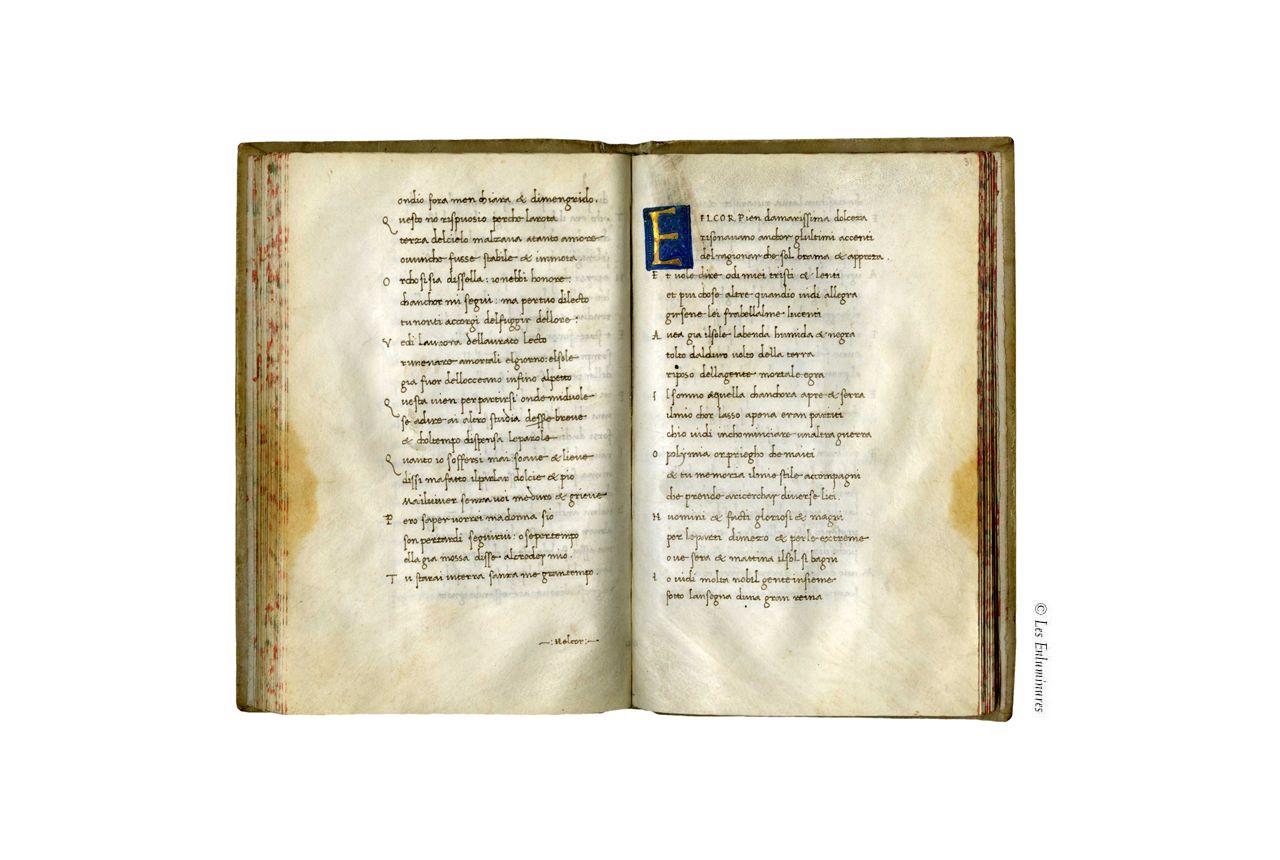 ondio fora men chiara & dimengrido.
Q uesto no rispuosio perche larota
terza delcielo malzava atanto amore
ovunche fusse stabile & immota
O rchosisia dissella: ionebbi honore:
chanchor mi segui: ma per tuo dilecto
tu nonti accorgi delfuggir dellore:
V edi laurora dellaurato lecto
rimenare amortali elgiorno: elsole
gia fuor delloceano infino alpetto
Q uesta vien per partirsi onde miduole
se a dire ai altro studia desse breve
& choltempo dispensa leparole
Q uanto io soffersi mai: soave & lieve
dissi mafatto ilparlar dolcie & pio
Mailviver senza voi me duro & grieve
P ero saper vorrei madonna sio
son pertardi seguirvi: osepertempo
ella gia mossa disse alcreder mio.
T u starai interra sanza me gran tempo.
—:Nelcor:—
31
E ELCOR Pien damarissima dolceza
risonavano anchor glultimi accenti
delragionar che sol brama & appreza.
E t vole dire odi miei tristi & lenti
et piu chose altre quandio vidi allegra
girsene lei frabellalme lucenti
A vea gia ilsole labenda humida & negra
tolto dalduro volto della terra
riposo dellagente mortale egra
I lsomno & quella chanchora apre & serra
ilmio chor lasso apena eran partiti
chio vidi inchominciare unaltra guerra
O polymia or priegho che maiti
& tu memoria ilmie stile accompagni
che prende aricerchar diverse liti.
H uomini & facti gloriosi & magni
per leparti dimezo & perle extreme
ove sera & mattina ilsol si bagni
I o vidi molta nobil gente insieme
sotto lansegna duna gran reina
© Les Enluminures